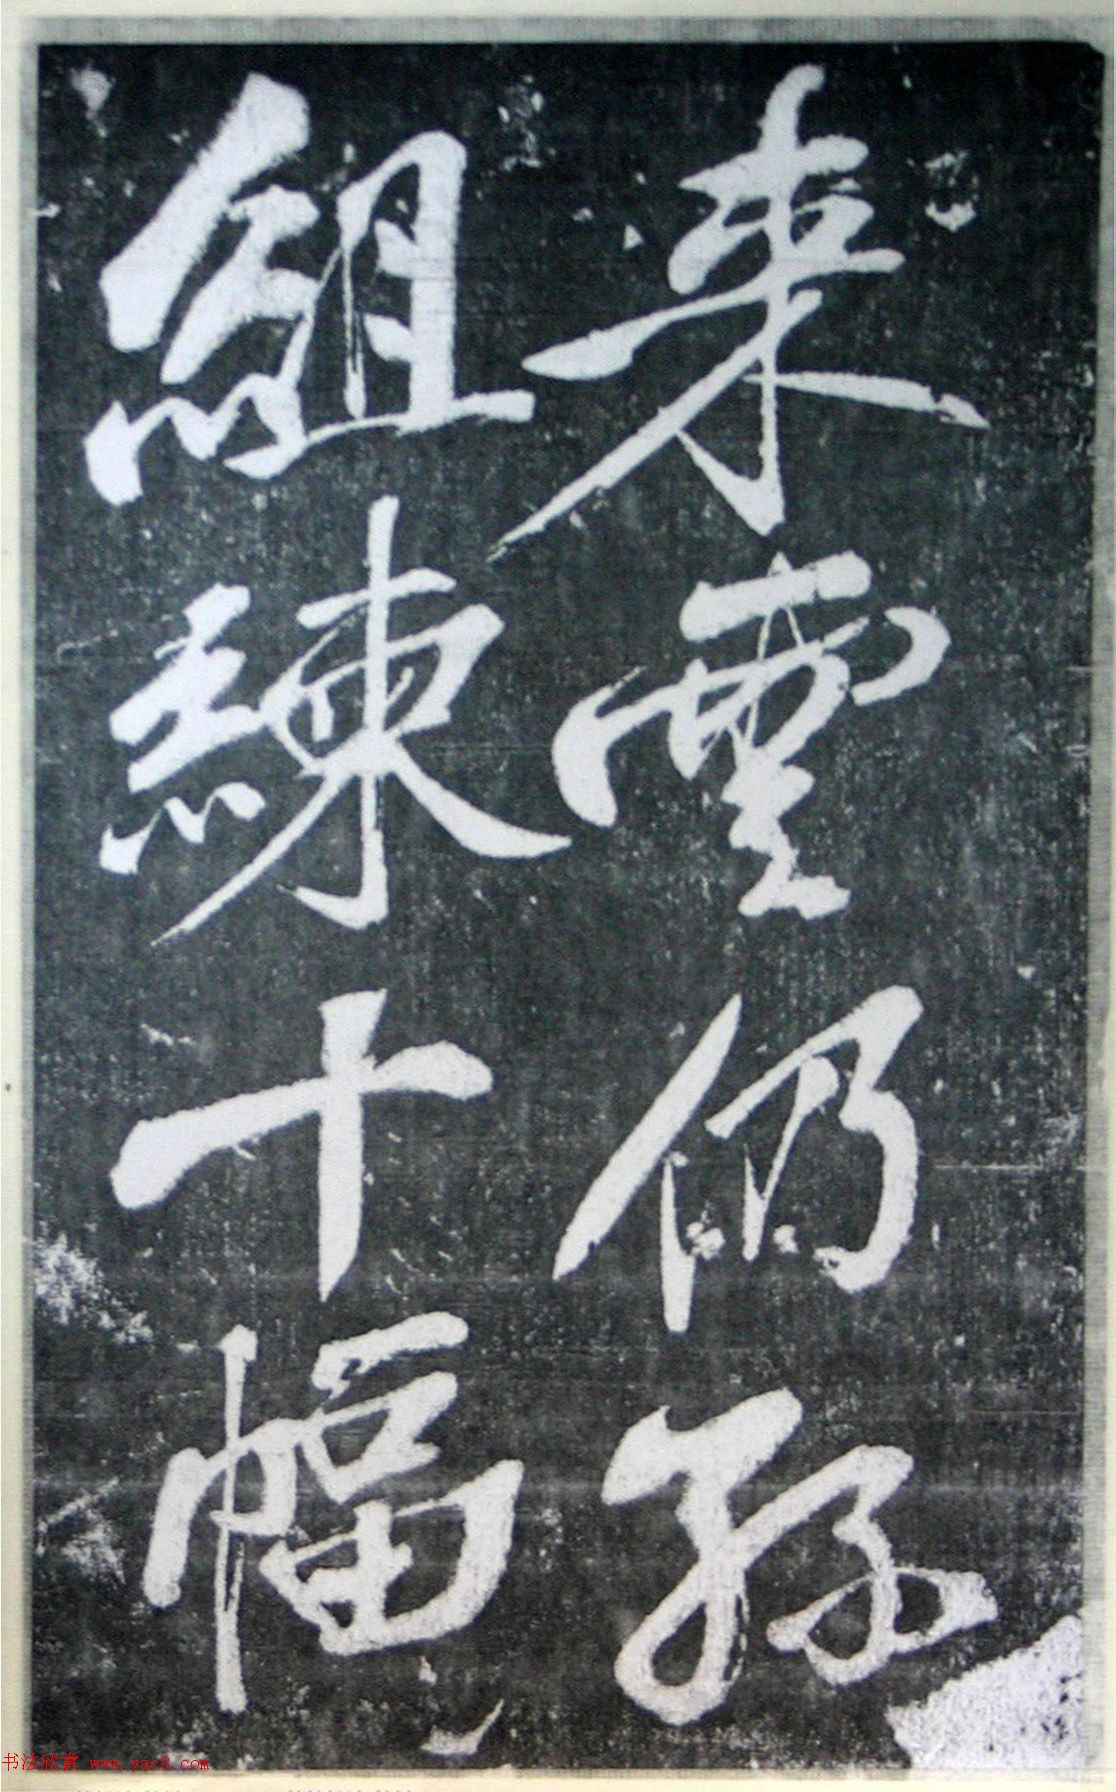 仍孫
組練十幅
书法欣赏 www.yac8.com